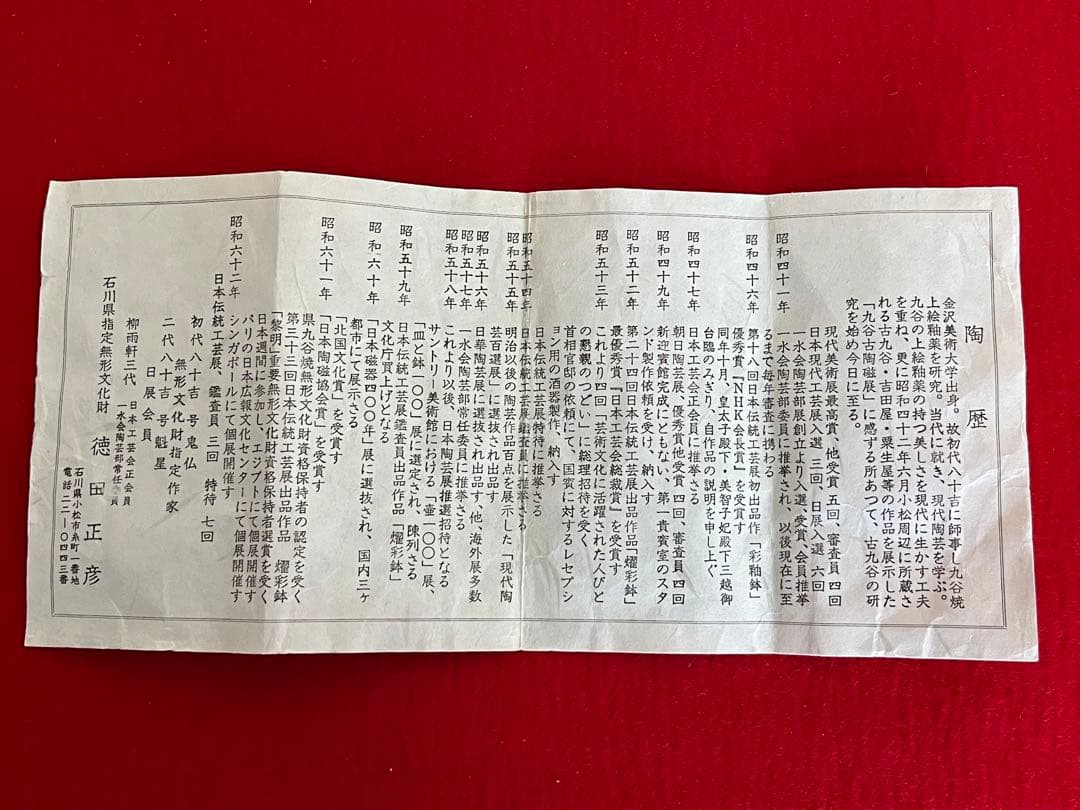 陶歴
金沢美術大学出身。故初代八十吉に師事し九谷焼
上絵釉薬を研究。当代に就き、現代陶芸を学ぶ。
九谷の上絵釉薬の持つ美しさを現代に生かす工夫
を重ね、更に昭和四十二年六月小松周辺に所蔵さ
れる古九谷・吉田屋・粟生屋等の作品を展示した
「九谷古陶磁展」に感ずる所あって、古九谷の研
究を始め今日に至る。
現代美術展最高賞、他受賞 五回、審査員 四回
日本現代工芸展入選 三回、日展入選 六回
昭和四十一年 一水会陶芸部展創立より入選、受賞、会員推挙
一水会陶芸部委員に推挙され、以後現在に至
るまで毎年審査に携わる
昭和四十六年 第十八回日本伝統工芸展初出品作「彩釉鉢」
優秀賞「NHK会長賞」を受賞す
同年十月、皇太子殿下・美智子妃殿下三越御
台臨のみぎり、自作品の説明を申し上ぐ
昭和四十七年 日本工芸会正会員に推挙さる
朝日陶芸展、優秀賞他受賞 四回、審査員 四回
昭和四十九年 新迎賓館完成にともない、第一貴賓室のスタ
ンド製作依頼を受け、納入す
昭和五十二年 第二十四回日本伝統工芸展出品作「燿彩鉢」
最優秀賞「日本工芸会総裁賞」を受賞す
昭和五十三年 これより四回「芸術文化に活躍された人びと
の懇親のつどい」に総理招待を受く
首相官邸の依頼にて、国賓に対するレセプシ
ョン用の酒器製作、納入す
日本伝統工芸展特待に推挙さる
昭和五十四年 日本伝統工芸展鑑査員に推挙さる
昭和五十五年 明治以後の陶芸作品百点を展示した「現代陶
芸百選展」に選抜され出品す
昭和五十六年 日華陶芸展に選抜され出品す、他、海外展多数
昭和五十七年 一水会陶芸部常任委員に推挙さる
昭和五十八年 これより以後、日本陶芸展推選招待となる
サントリー美術館における「壷一〇〇」展、
「皿と鉢一〇〇」展に選定され、陳列さる
昭和五十九年 日本伝統工芸展鑑査員出品作品「燿彩鉢」
文化庁買上げとなる
昭和六十年 「日本磁器四〇〇年」展に選抜され、国内三ヶ
都市にて展示さる
「北国文化賞」を受賞す
昭和六十一年 「日本陶磁協会賞」を受賞す
県九谷焼無形文化財資格保持者の認定を受く
第三十三回日本伝統工芸展出品作品 燿彩鉢
「黎明」重要無形文化財資格保持者選賞を受く
日本週間に参加し、エジプトにて個展開催す
昭和六十二年 パリの日本広報文化センターにて個展開催す
シンガポールにて個展開催す
日本伝統工芸展、鑑査員 三回 特待 七回
初代八十吉 号鬼仏
無形文化財指定作家
二代八十吉 号魁星
日展会員
柳雨軒三代 日本工芸会正会員
一水会陶芸部常任委員
石川県指定無形文化財
徳田正彦
石川県小松市糸町一番地
電話 二二-〇四四三番